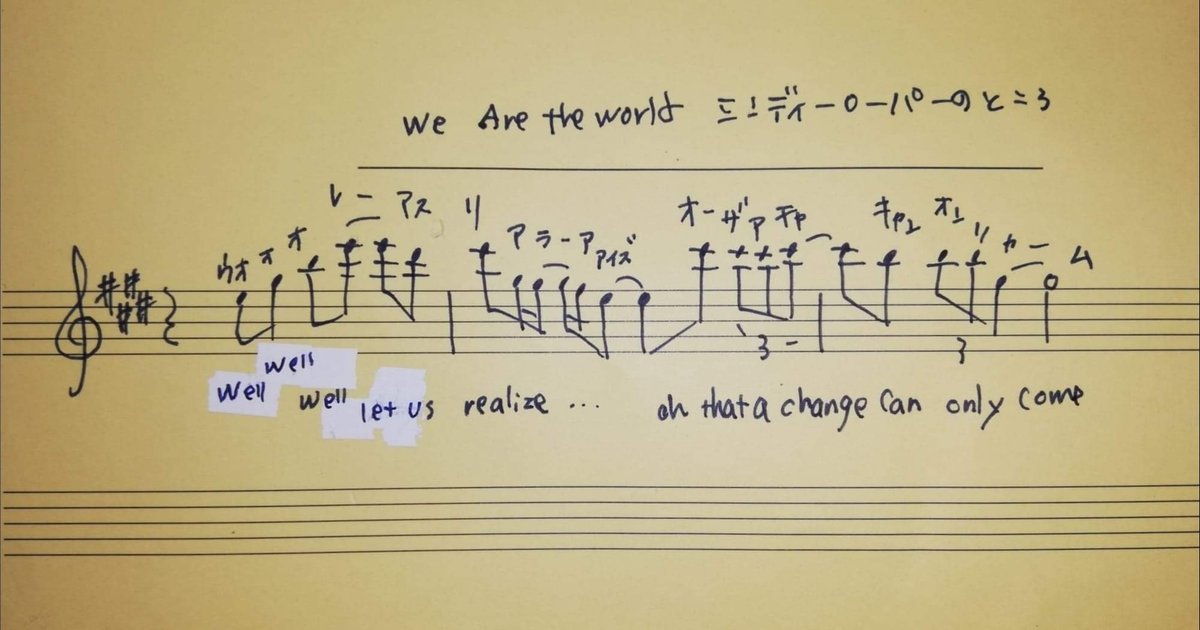 We Are the world シンディーローパーのところ
ウオ オ オ レー アス リ アラーア アイズ オーザア チャ キャン オンリ カーム
3 3
well
well well let us realize ... oh that a change can only come